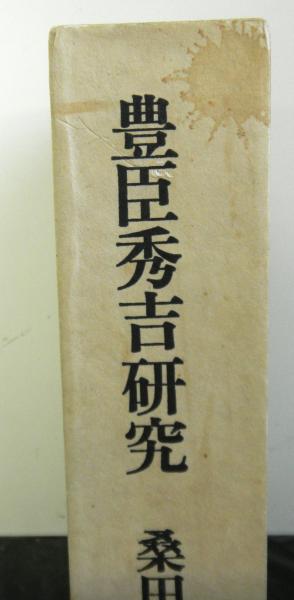 豊臣秀吉研究
桑田